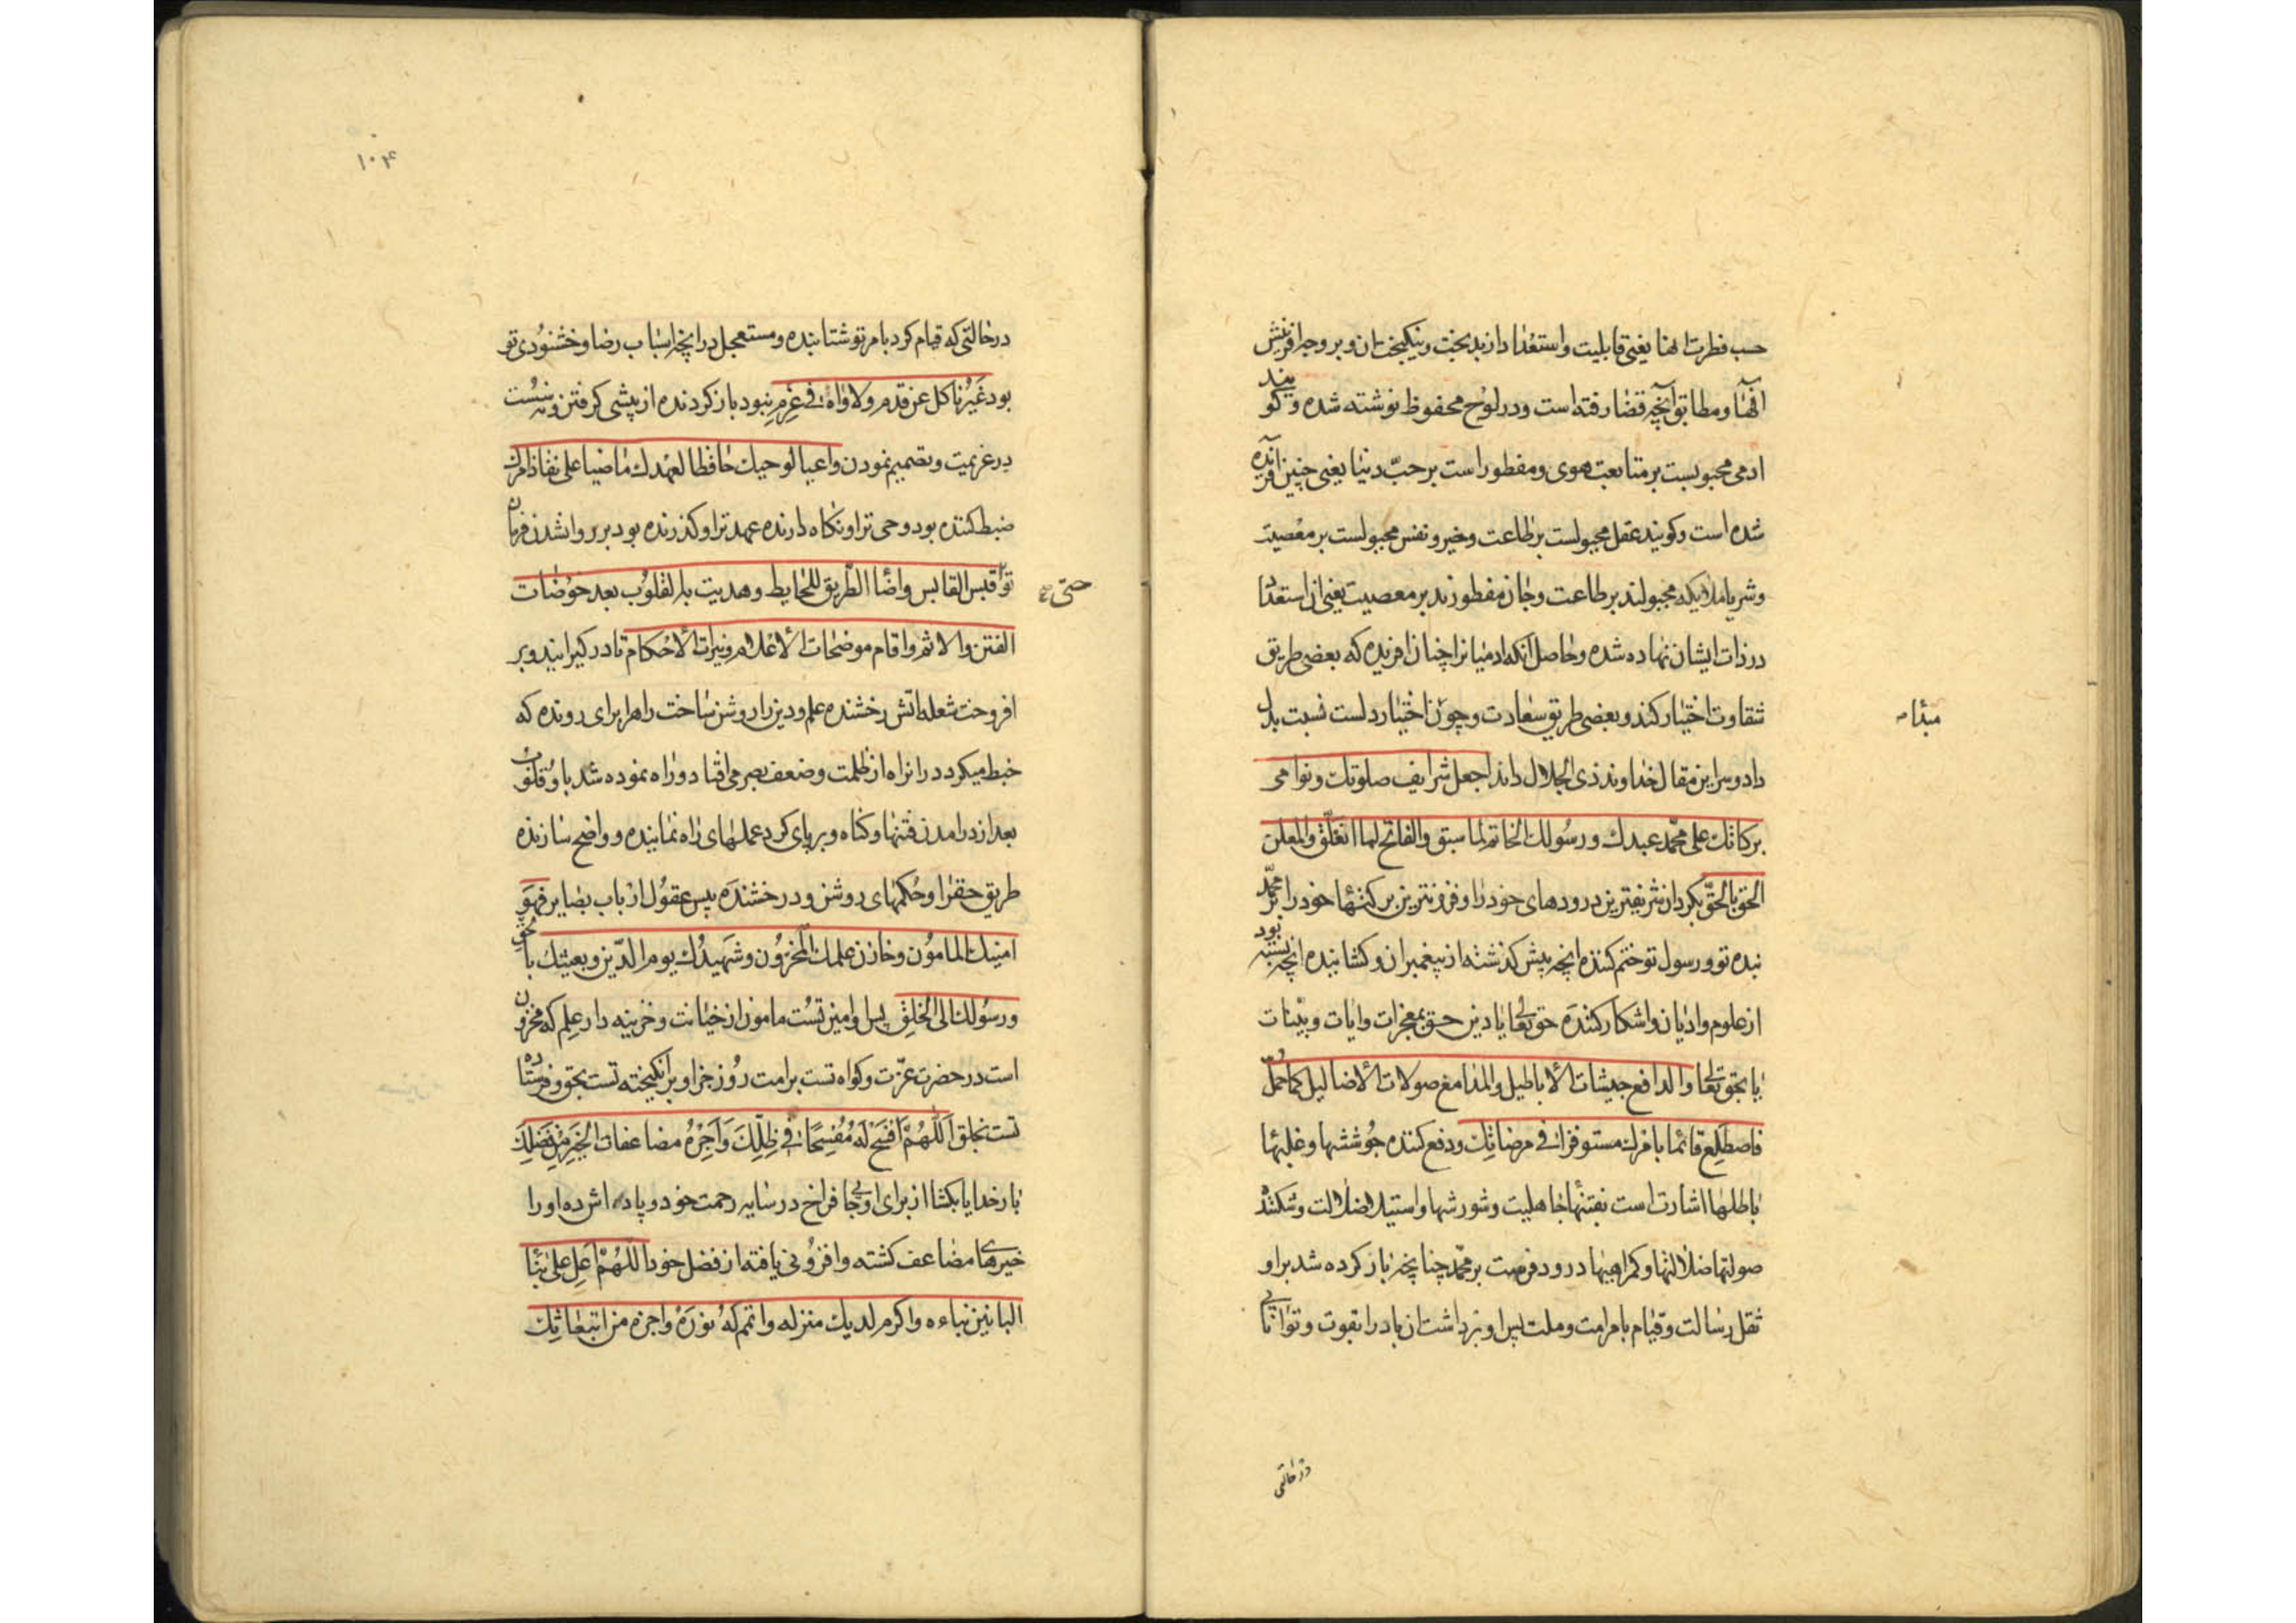 حسب فطرت انها یعنی قابلیت و استعداد از بدبخت و نیکبخت ان و بر وجه افرینش
آنها و مطابق آنچه قضا رفته است و در لوح محفوظ نوشته شده و گویند
ادمی مجبولست بر متابعت هوی و مفطور است بر حبّ دنیا یعنی چنین آفریده
شده است و کویند عقل مجبولست بر طاعت و خیر و نفس مجبولست بر معصیت
و شر یا ملایکه مجبولند بر طاعت و جان مفطورند بر معصیت یعنی ان استعداد
در ذات ایشان نهاده شده و حاصل آنکه ادمیانرا چنان افریده که بعضی طریق
شقاوت اختیار کنند و بعضی طریق سعادت و چون اختیار دلست نسبت بدل
مبداء
داد و سر این مقال خداوند ذی الجلال داند اجعل شرایف صلوتك و نوامی
برکاتك علی محمّد عبدك و رسولك الخاتم لما سبق و الفاتح لما انغلق و المعلن
الحق بالحقّ بکردان شریفترین درودهای خود را و فزونترین برکتها خود را بر محمّد
بنده تو و رسول تو ختم کننده انچه پیش گذشته از پیغمبران و کشاینده انچه بسته بود
از علوم و ادیان و اشکار کننده حق تعالی یا دین حق بمعجزات و ایات و بیّنات
یا بحق تعالی و الدافع جیشات الاباطیل و الدامغ صولات الاضالیل کما حمّل
فاصطلع قائما بامرك مستوفزا فی مرضاتك و دفع کننده جوششها و غلبها
باطلها اشارت است بفتنها جاهلیت و شورشها و استیلا ضلالت و شکننده
صولتها ضلالتها و کمراهیها درود فرست بر محمّد چنانچه باز کرده شد بر او
ثقل رسالت و قیام بامر امت و ملت پس او برداشت ان باد را بقوت و توانائی
در حالتی
۱۰۴
در حالتی که قیام کرد بامر تو شتابنده و مستعجل در انچه اسباب رضا و خشنودی تو
بود غیر ناکل عن قدم و لا واه فی عزم نبود باز کردنده از پیشی کرفتن و نه سست
در عزیمت و تصمیم نمودن واعیا لوحیك حافظا لعهدك ماضیا علی نفاذ امرك
ضبط کننده بود وحی ترا و نکاه دارنده عهد ترا و کذرنده بود بر روانشدن فرمان
حتی
تو قبس القابس و اضاء الطریق للخابط و هدیت به القلوب بعد خوضات
الفتن و الاثم و اقام موضحات الاعلام و نیرات الاحکام تا درکیرانید و بر
افروخت شعله اتش رخشنده علم و دین را روشن ساخت راه را برای رونده که
خبط میکرد در انراه از ظلمت و ضعف بصر می افتاد و راه نموده شد با و قلوب
بعد از درامدن فتنها و کناه و برپای کرد عملهای راه نماینده و واضح سازنده
طریق حقرا و حکمهای روشن و درخشنده پیس عقول ارباب بصایر فهو
امینك المامون و خازن علمك المخزون و شهیدك یوم الدّین و بعیثك بالحق
و رسولك الی الخلق پس او امین تست مامون از خیانت و خزینه دار علم که مخزون
است در حضرت عزّت و کواه تست بر امت روز جزا و برانکیخته تست بحق و فرستاده
تست بخلق اللّهمّ افسح له مفسحا فی ظلّك و اجزه مضاعفات الخیر من فضلك
بار خدایا بکشا از برای او جای فراخ در سایه رحمت خود و پاداش ده او را
خیرهای مضاعف کشته و افزونی یافته از فضل خود اللّهمّ اعل علی بناء
البانین بناءه و اکرم لدیك منزله و اتمم له نوره و اجزه من ابتعاثك